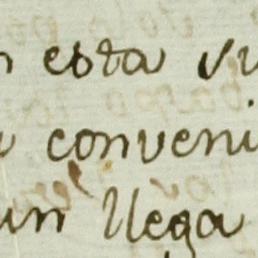 n esta vi
a conveni
un llega